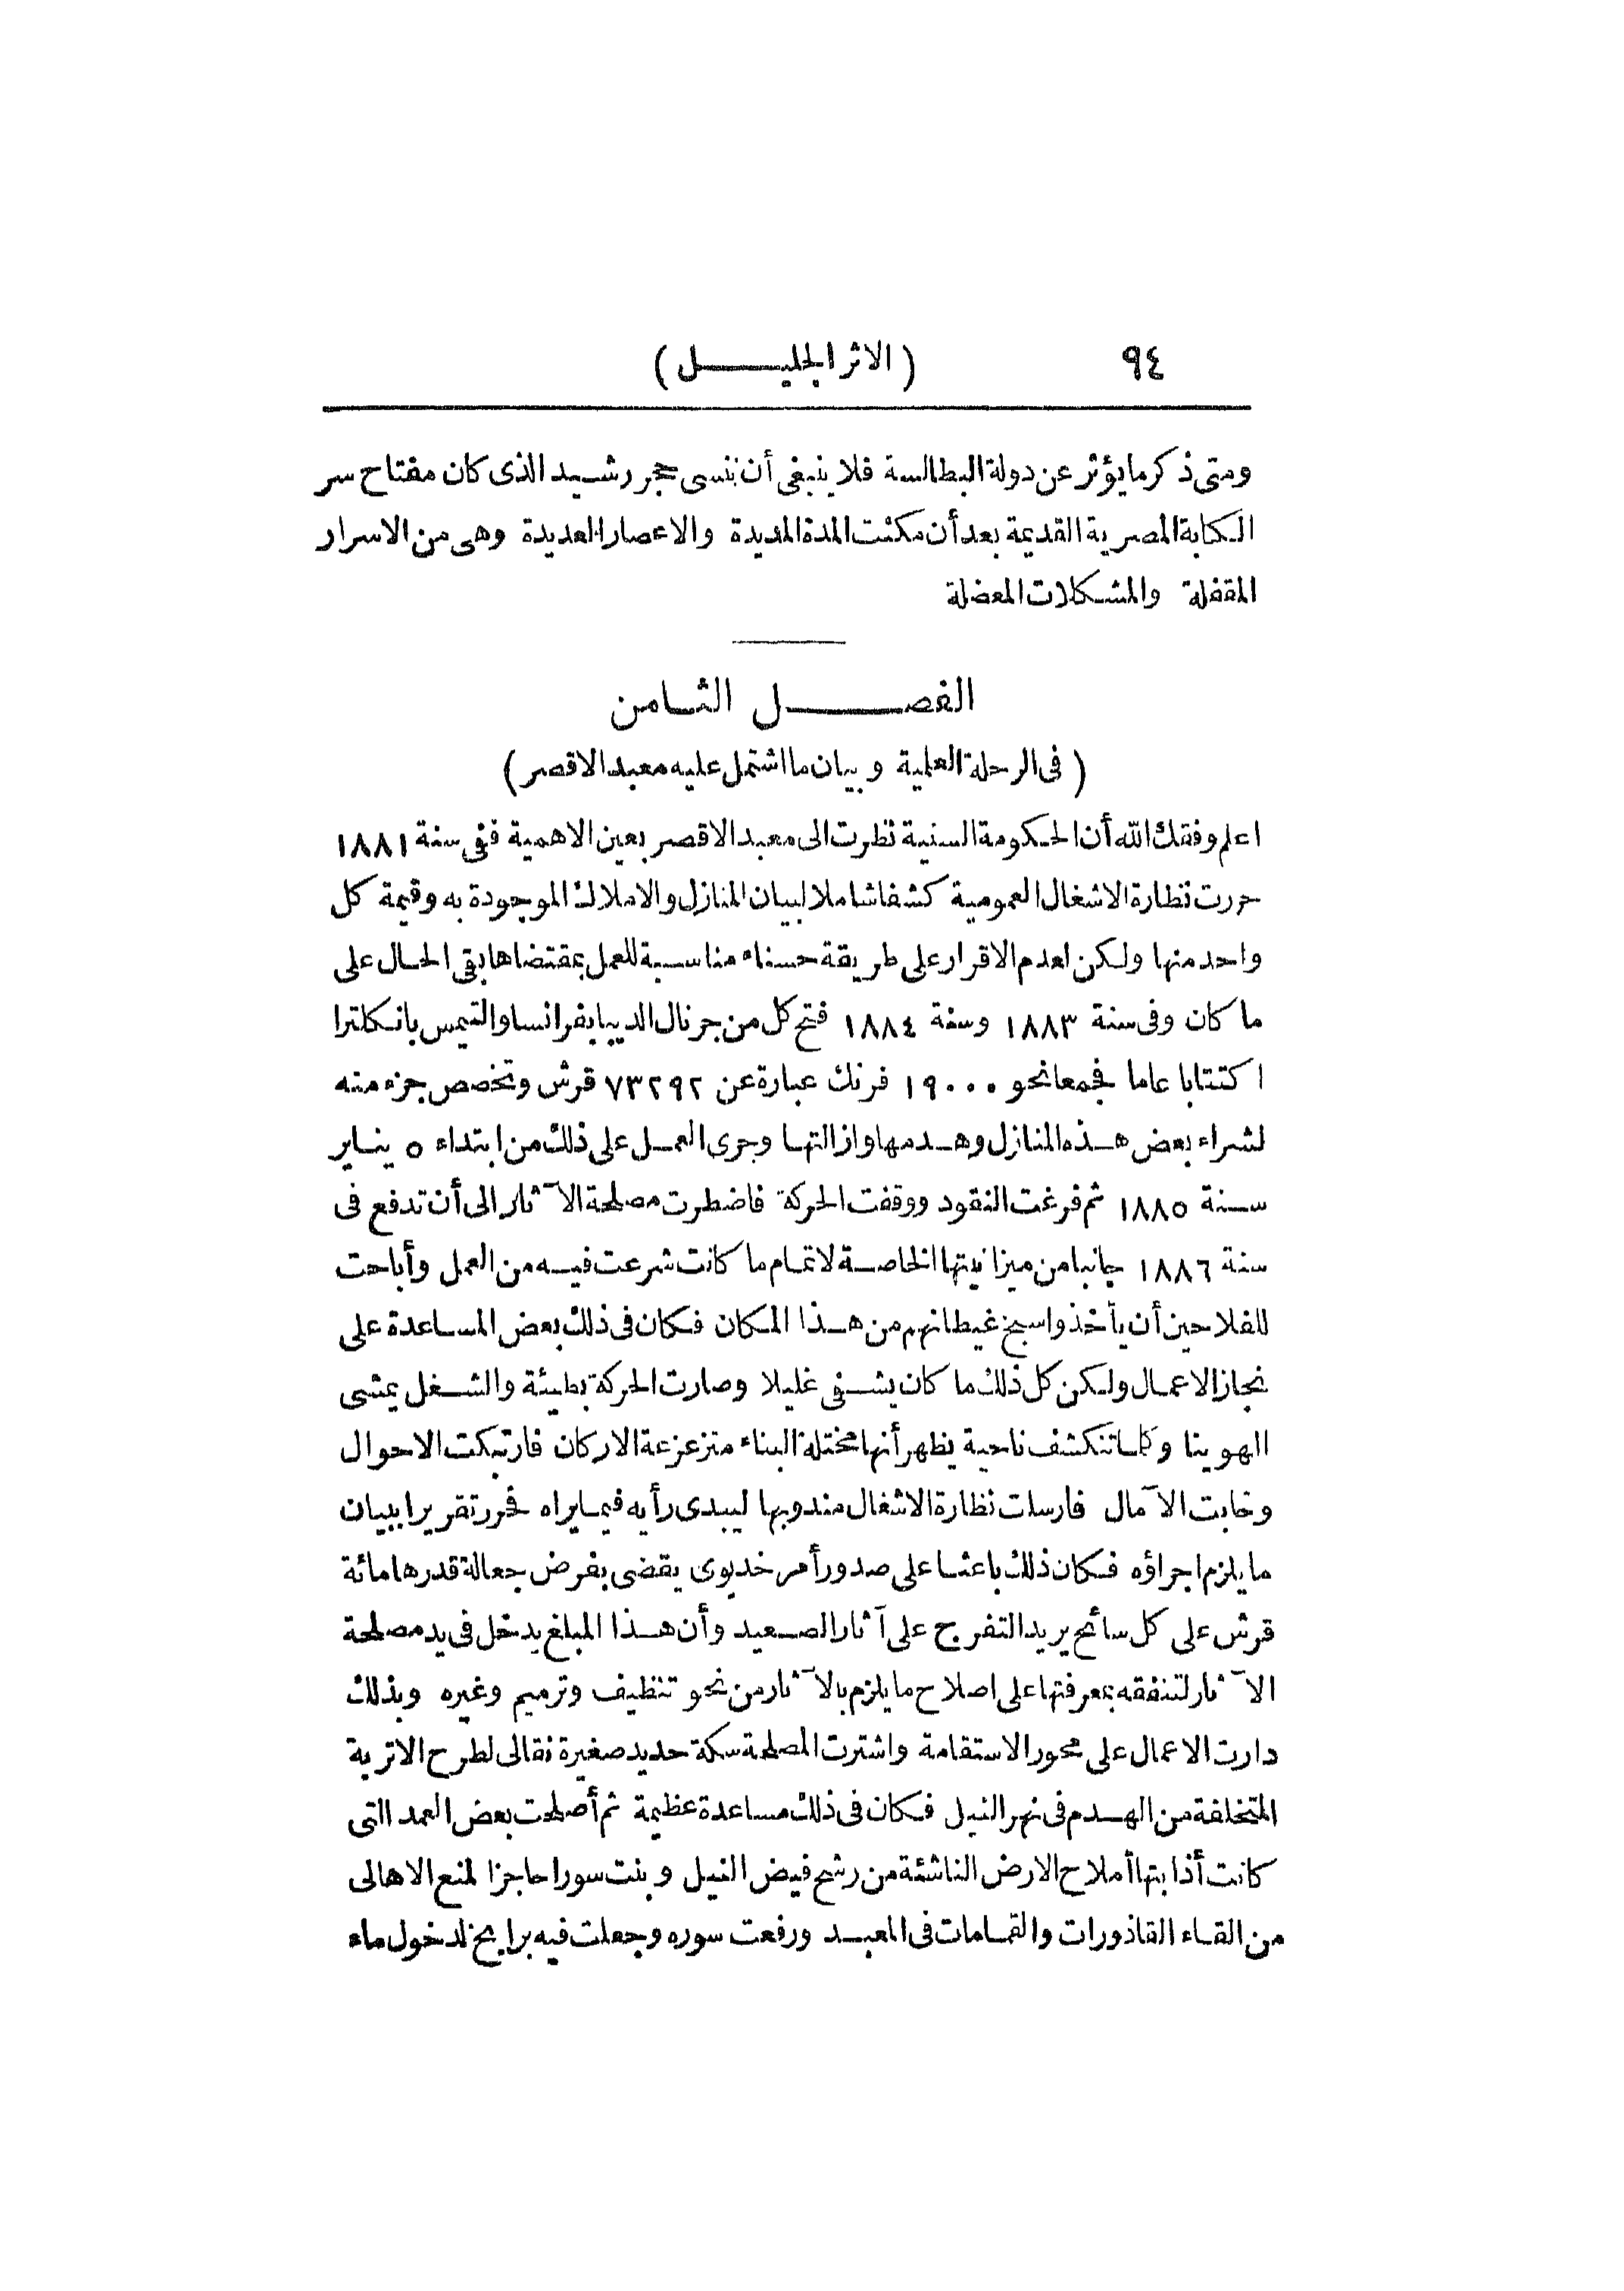 ٩٤ (الاثر الجليل)
ومتى ذكر ما يؤثر عن دولة البطالسة فلا ينبغى أن ننسى حجر رشيد الذى كان مفتاح سر
الكتابة المصرية القديمة بعد أن مكثت المدة المديدة والاعصار العديدة وهى من الاسرار
المقفلة والمشكلات المعضلة
الفصل الثامن
(فى الرحلة العلمية وبيان ما اشتمل عليه معبد الاقصر)
اعلم وفقك الله أن الحكومة السنية نظرت الى معبد الاقصر بعين الاهمية ففى سنة ١٨٨١
حررت نظارة الاشغال العمومية كشفا شاملا لبيان المنازل والاملاك الموجودة به وقيمة كل
واحد منها ولكن لعدم الاقرار على طريقة حسناء مناسبة للعمل بمقتضاها بقى الحال على
ما كان وفى سنة ١٨٨٣ وسنة ١٨٨٤ فتح كل من جرنال الديبا بفرانسا والتيمس بانكلترا
اكتتابا عاما فجمعا نحو ١٩٠٠٠ فرنك عبارة عن ٧٣٢٩٢ قرش وتخصص جزء منه
لشراء بعض هذه المنازل وهدمها وازالتها وجرى العمل على ذلك من ابتداء ٥ يناير
سنة ١٨٨٥ ثم فرغت النقود ووقفت الحركة فاضطرت مصلحة الآثار الى أن تدفع فى
سنة ١٨٨٦ جانبا من ميزانيتها الخاصة لاتمام ما كانت شرعت فيه من العمل وأباحت
للفلاحين أن يأخذوا سبخ غيطانهم من هذا المكان فكان فى ذلك بعض المساعدة على
نجاز الاعمال ولكن كل ذلك ما كان يشفى غليلا وصارت الحركة بطيئة والشغل يمشى
الهوينا وكلما تنكشف ناحية يظهر أنها مختلة البناء متزعزعة الاركان فارتبكت الاحوال
وخابت الآمال فارسلت نظارة الاشغال مندوبها ليبدى رأيه فيما يراه فحرر تقريرا ببيان
ما يلزم اجراؤه فكان ذلك باعثا على صدور أمر خديوى يقضى بفرض جعالة قدرها مائة
قرش على كل سائح يريد التفرج على آثار الصعيد وأن هذا المبلغ يدخل فى يد مصلحة
الآثار لتنفقه بمعرفتها على اصلاح ما يلزم بالآثار من نحو تنظيف وترميم وغيره وبذلك
دارت الاعمال على محور الاستقامة واشترت المصلحة سكة حديد صغيرة نقالى لطرح الاتربة
المتخلفة من الهدم فى نهر النيل فكان فى ذلك مساعدة عظيمة ثم أصلحت بعض العمد التى
كانت أذابتها أملاح الارض الناشئة من رشح فيض النيل وبنت سورا حاجزا لمنع الاهالى
من القاء القاذورات والقمامات فى المعبد ورفعت سوره وجعلت فيه برابخ لدخول ماء